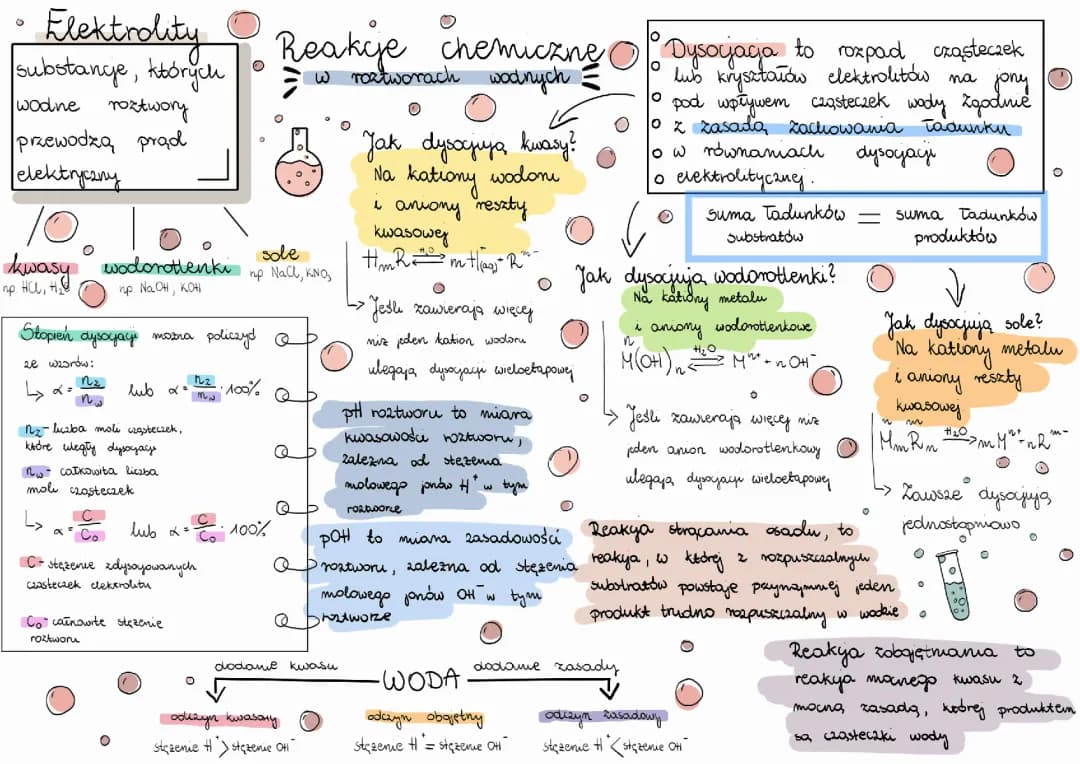 Elektrolity
substancje, których
wodne roztwory
przewodzą prąd
elektryczny
kwasy
np. HCl, H₂S
wodorotlenki
np. NaOH, KOH
sole
np NaCl, KNO₃
Reakcje chemiczne
w roztworach wodnych
Dysocjacja to rozpad cząsteczek
lub kryształów elektrolitów na jony
pod wpływem cząsteczek wody zgodnie
z zasadą zachowania ładunku
w równaniach dysocjacji
elektrolitycznej.
suma ładunków = suma ładunków
substratów produktów
Jak dysocjują kwasy?
Na kationy wodoru
i aniony reszty
kwasowej
Jeśli zawierają więcej
niż jeden kation wodoru
ulegają dysocjacji wieloetapowej
Jak dysocjują wodorotlenki?
Na kationy metalu
i aniony wodorotlenkowe
M(OH)ₙ ⇄ Mⁿ⁺ + nOH⁻
H₂O
Jeśli zawierają więcej niż
jeden anion wodorotlenkowy
ulegają dysocjacji wieloetapowej
Jak dysocjują sole?
Na kationy metalu
i aniony reszty
kwasowej
n m
MₘRₙ → mMⁿ⁺ + nRᵐ⁻
H₂O
Zawsze dysocjują
jednostopniowo
Stopień dysocjacji można policzyć
ze wzorów:
α = n_z/n_w lub α = n_z/n_w · 100%
n_z - liczba moli cząsteczek,
które uległy dysocjacji
n_w - całkowita liczba
moli cząsteczek
α = C/C₀ lub α = C/C₀ · 100%
C - stężenie zdysocjowanych
cząsteczek elektrolitu
C₀ - całkowite stężenie
roztworu
pH roztworu to miara
kwasowości roztworu,
zależna od stężenia
molowego jonów H⁺ w tym
roztworze
pOH to miara zasadowości
roztworu, zależna od stężenia
molowego jonów OH⁻ w tym
roztworze
Reakcja strącania osadu, to
reakcja, w której z rozpuszczalnych
substratów powstaje przynajmniej jeden
produkt trudno rozpuszczalny w wodzie
Reakcja zobojętniania to
reakcja mocnego kwasu z
mocną zasadą, której produktem
są cząsteczki wody
dodanie kwasu WODA dodanie zasady
odczyn kwasowy
stężenie H⁺ > stężenie OH⁻
odczyn obojętny
stężenie H⁺ = stężenie OH⁻
odczyn zasadowy
stężenie H⁺ < stężenie OH⁻